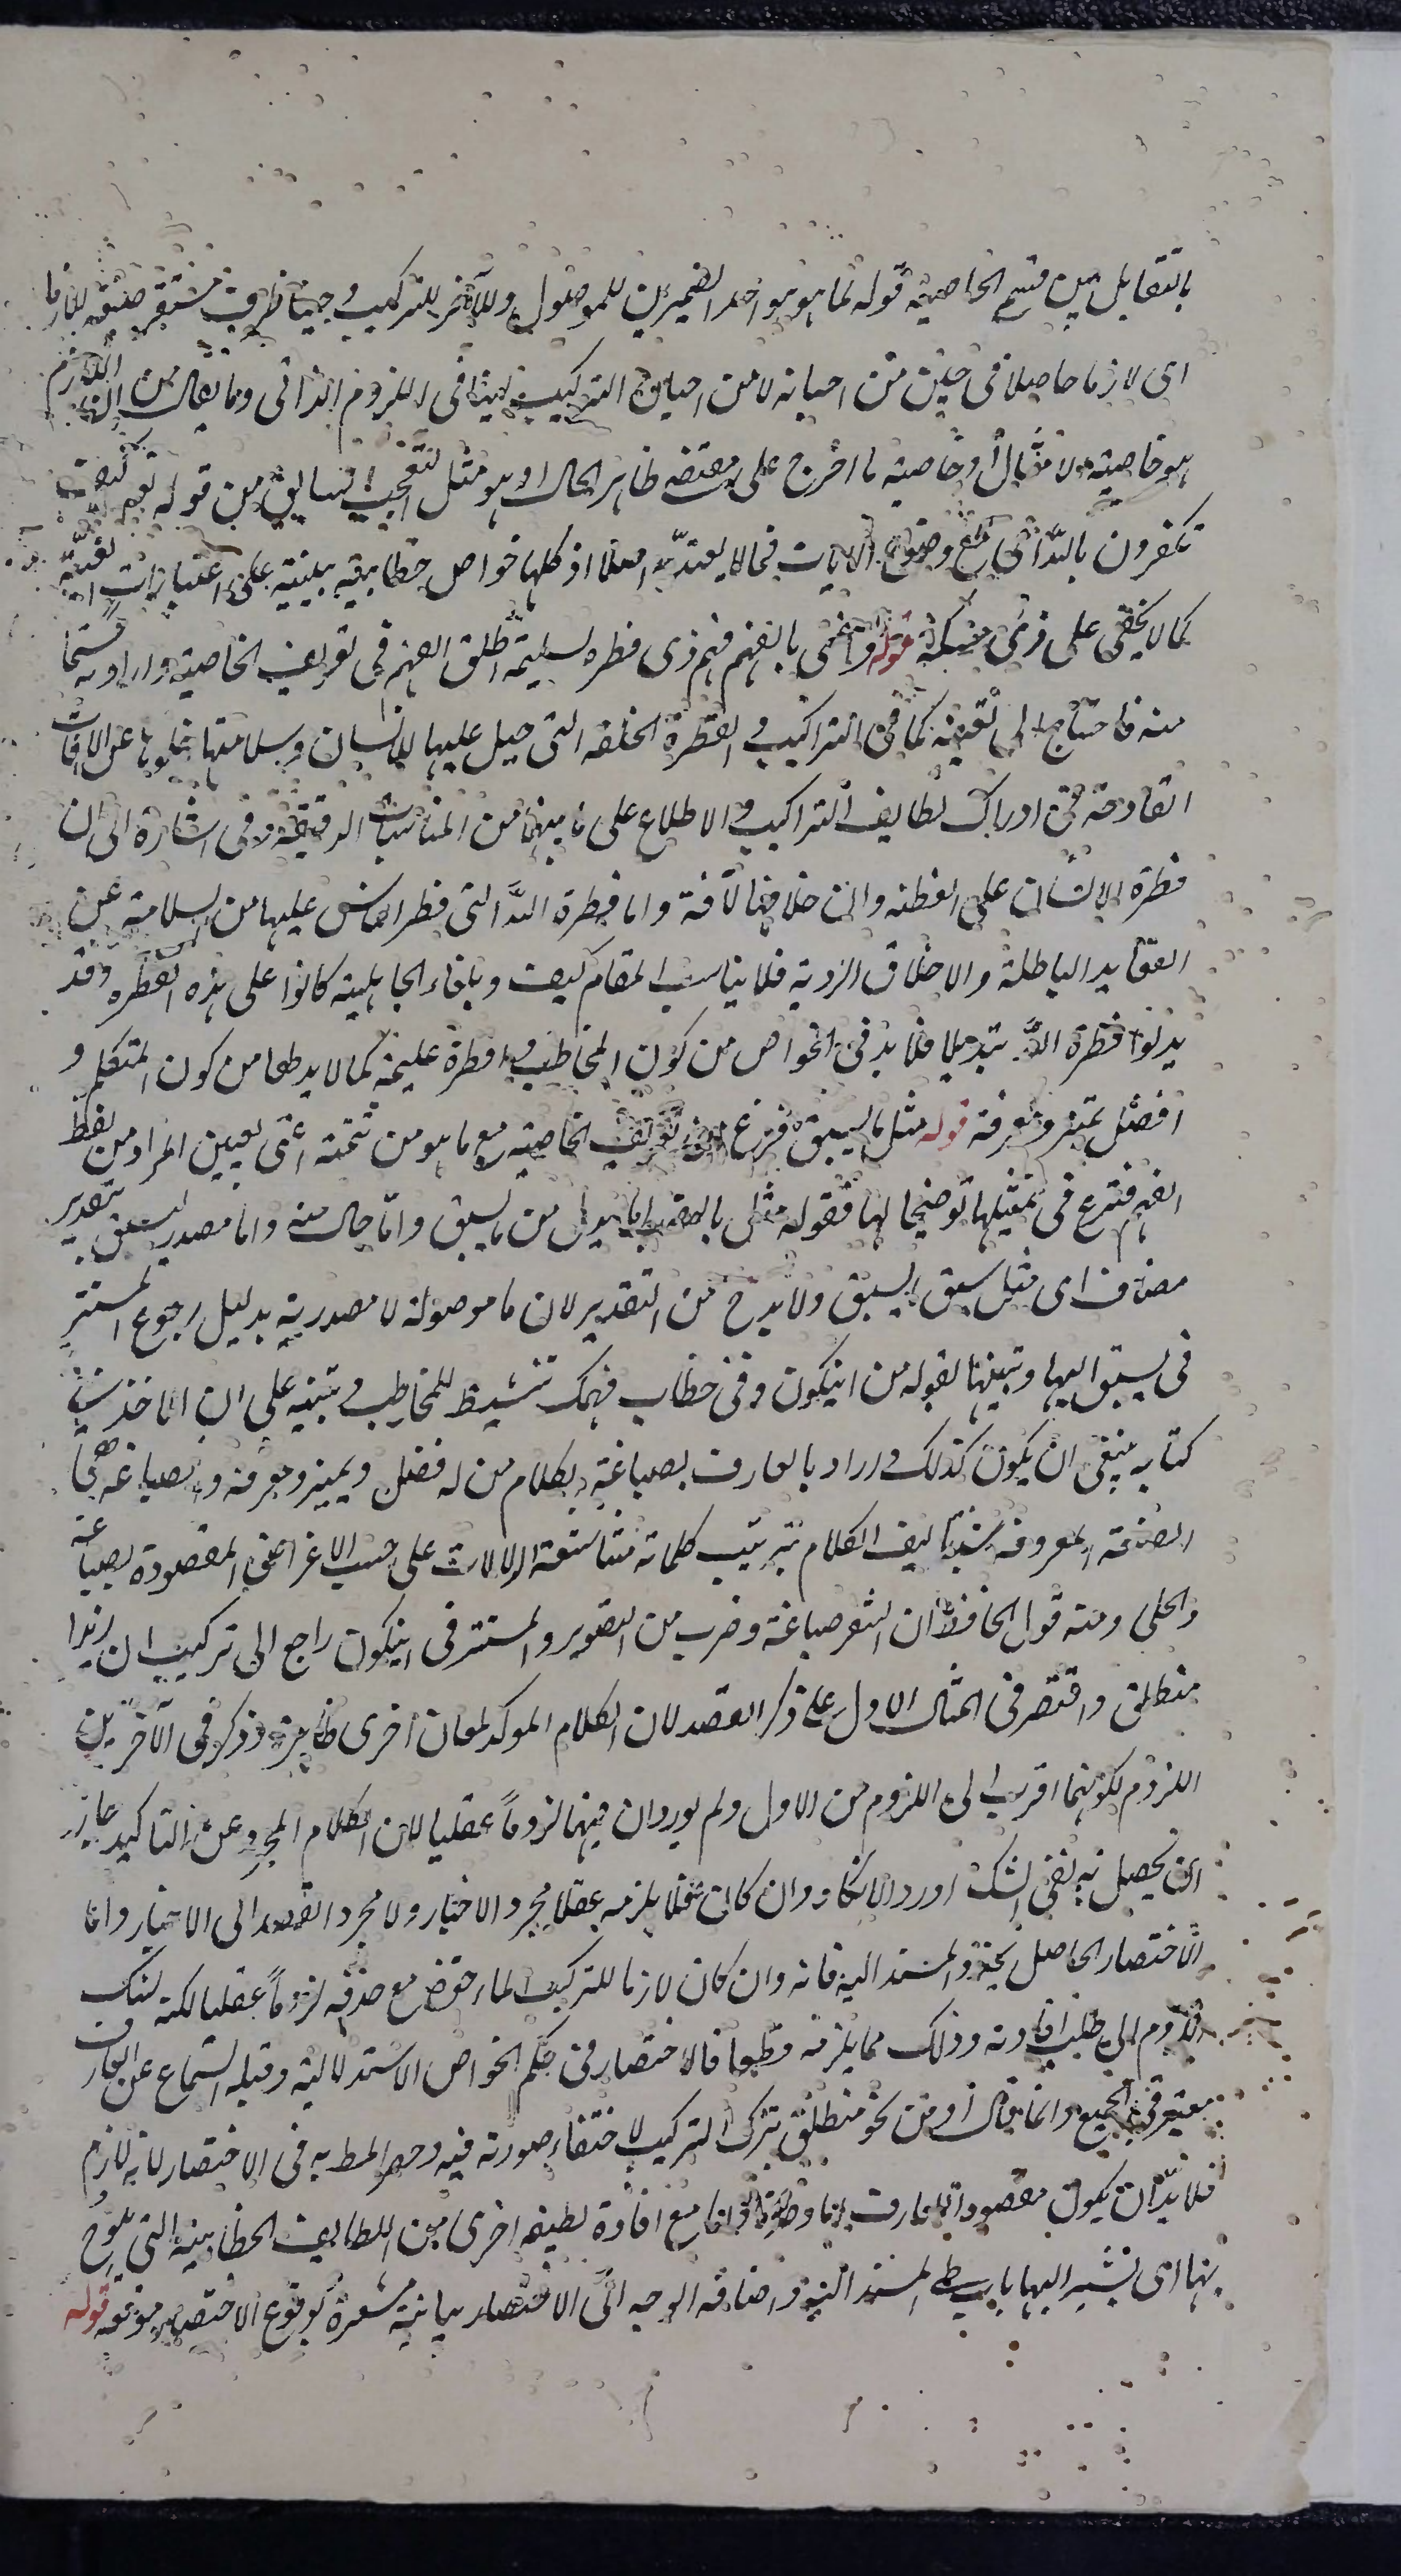 بالتقابل بين قسمى الخاصية قوله لما هو هو احد الضميرين للموصول وللآخر للتركيب وحينا ظرف مستقر صفة للازما
اى لازما حاصلا فى حين من احيانه لا من احيان التركيب لينافى اللزوم الذاتى وما يقال من ان اللازم
هو خاصية لا مثال او خاصية ما اخرج على مقتضى ظاهر الحال او هو مثل التعجب السابق من قوله تعم كيف
تكفرون بالله اى مع وضوح الايات فمما لا يعتد به اصلا اذ كلها خواص خطابية مبنية على اعتبارات لفيّة
كما لا يخفى على ذى مسكة قوله واعنى بالفهم فهم ذى فطرة سليمة اطلق الفهم فى تعريف الخاصية واراد به قسما
منه فاحتاج الى تعيينه كما فى التراكيب والفطرة الخلقة التى جبل عليها الانسان وسلامتها خلوها عن الافات
القادحة فى ادراك لطايف التراكيب والاطلاع على ما بينها من المناسبات الدقيقة وفى اشارة الى ان
فطرة الانسان على الفطنة وان خلافها لآفة واما فطرة الله التى فطر الناس عليها من السلامة عن
العقايد الباطلة والاخلاق الردية فلا يناسب المقام كيف وبلغاء الجاهلية كانوا على هذه الفطرة وقد
بدلوا فطرة الله تبديلا فلا بد فى الخواص من كون المخاطب ذا فطرة سليمة كما لا بد لها من كون المتكلم ذا
افضل تميز ومعرفة قوله مثل ما يسبق فرغ من تعريف الخاصية مع ما هو من تتمته اعنى تعيين المراد من لفظ
الفهم فشرع فى تمثيلها توضيحا لها فقوله مثل بالنصب اما بدل من ما يسبق واما حال منه واما مصدر ليسبق بتقدير
مضاف اى مثل سبق ما يسبق ولا بد ح من التقدير لان ما موصولة لا مصدرية بدليل رجوع المستتر
فى يسبق اليها وتبيينها بقوله من ان يكون وفى خطاب فهمك تنشيط للمخاطب وتنبيه على ان الآخذ فى
كتابه ينبغى ان يكون كذلك واراد بالعارف بصياغة الكلام من له فضل تمييز ومعرفة والصياغة هى
الصنعة المعروفة شبه تاليف الكلام بترتيب كلماته متناسقة الدلالات على حسب الاغراض المقصودة بصياغة
الحلى ومنه قول الجاحظ ان الشعر صياغة وضرب من التصوير والمستتر فى ان يكون راجع الى تركيب ان زيدا
منطلق واقتصر فى المثال الاول على ذكر القصد لان الكلام الموكد لمعان اخرى ظاهرة وذكر فى الآخرين
اللزوم لكونهما اقرب الى اللزوم من الاول ولم يورد ان فيهما لزوماً عقليا لان الكلام المجرد عن التاكيد جاز
ان يحصل به نفى الشك او رد الانكار وان كان فلا يلزمه عقلا مجرد الاخبار ولا مجرد القصد الى الاخبار واما
الاختصار الحاصل بحذف المسند اليه فانه وان كان لازما للتركيب مع حذفه لزوماً عقليا لكنه لتلك
اللزوم الى طلب افادته وذلك مما يلزمه قطعا فالاختصار فى حكم الخواص الاستدلالية وقيد السماع عن العارف
معتبر فى الجميع وانما قال او من نحو منطلق بترك التركيب لاختفاء صورته فيه وحصر المط به فى الاختصار لانه لازم
فلا بد ان يكون مقصودا للعارف اما وحده واما مع افادة لطيفة اخرى من اللطايف الخطابية التى يلوح
بها اى يشير اليها باب طى المسند اليه واضافة الوجه الى الاختصار بيانية مشعرة بوقوع الاختصار موقعه قوله